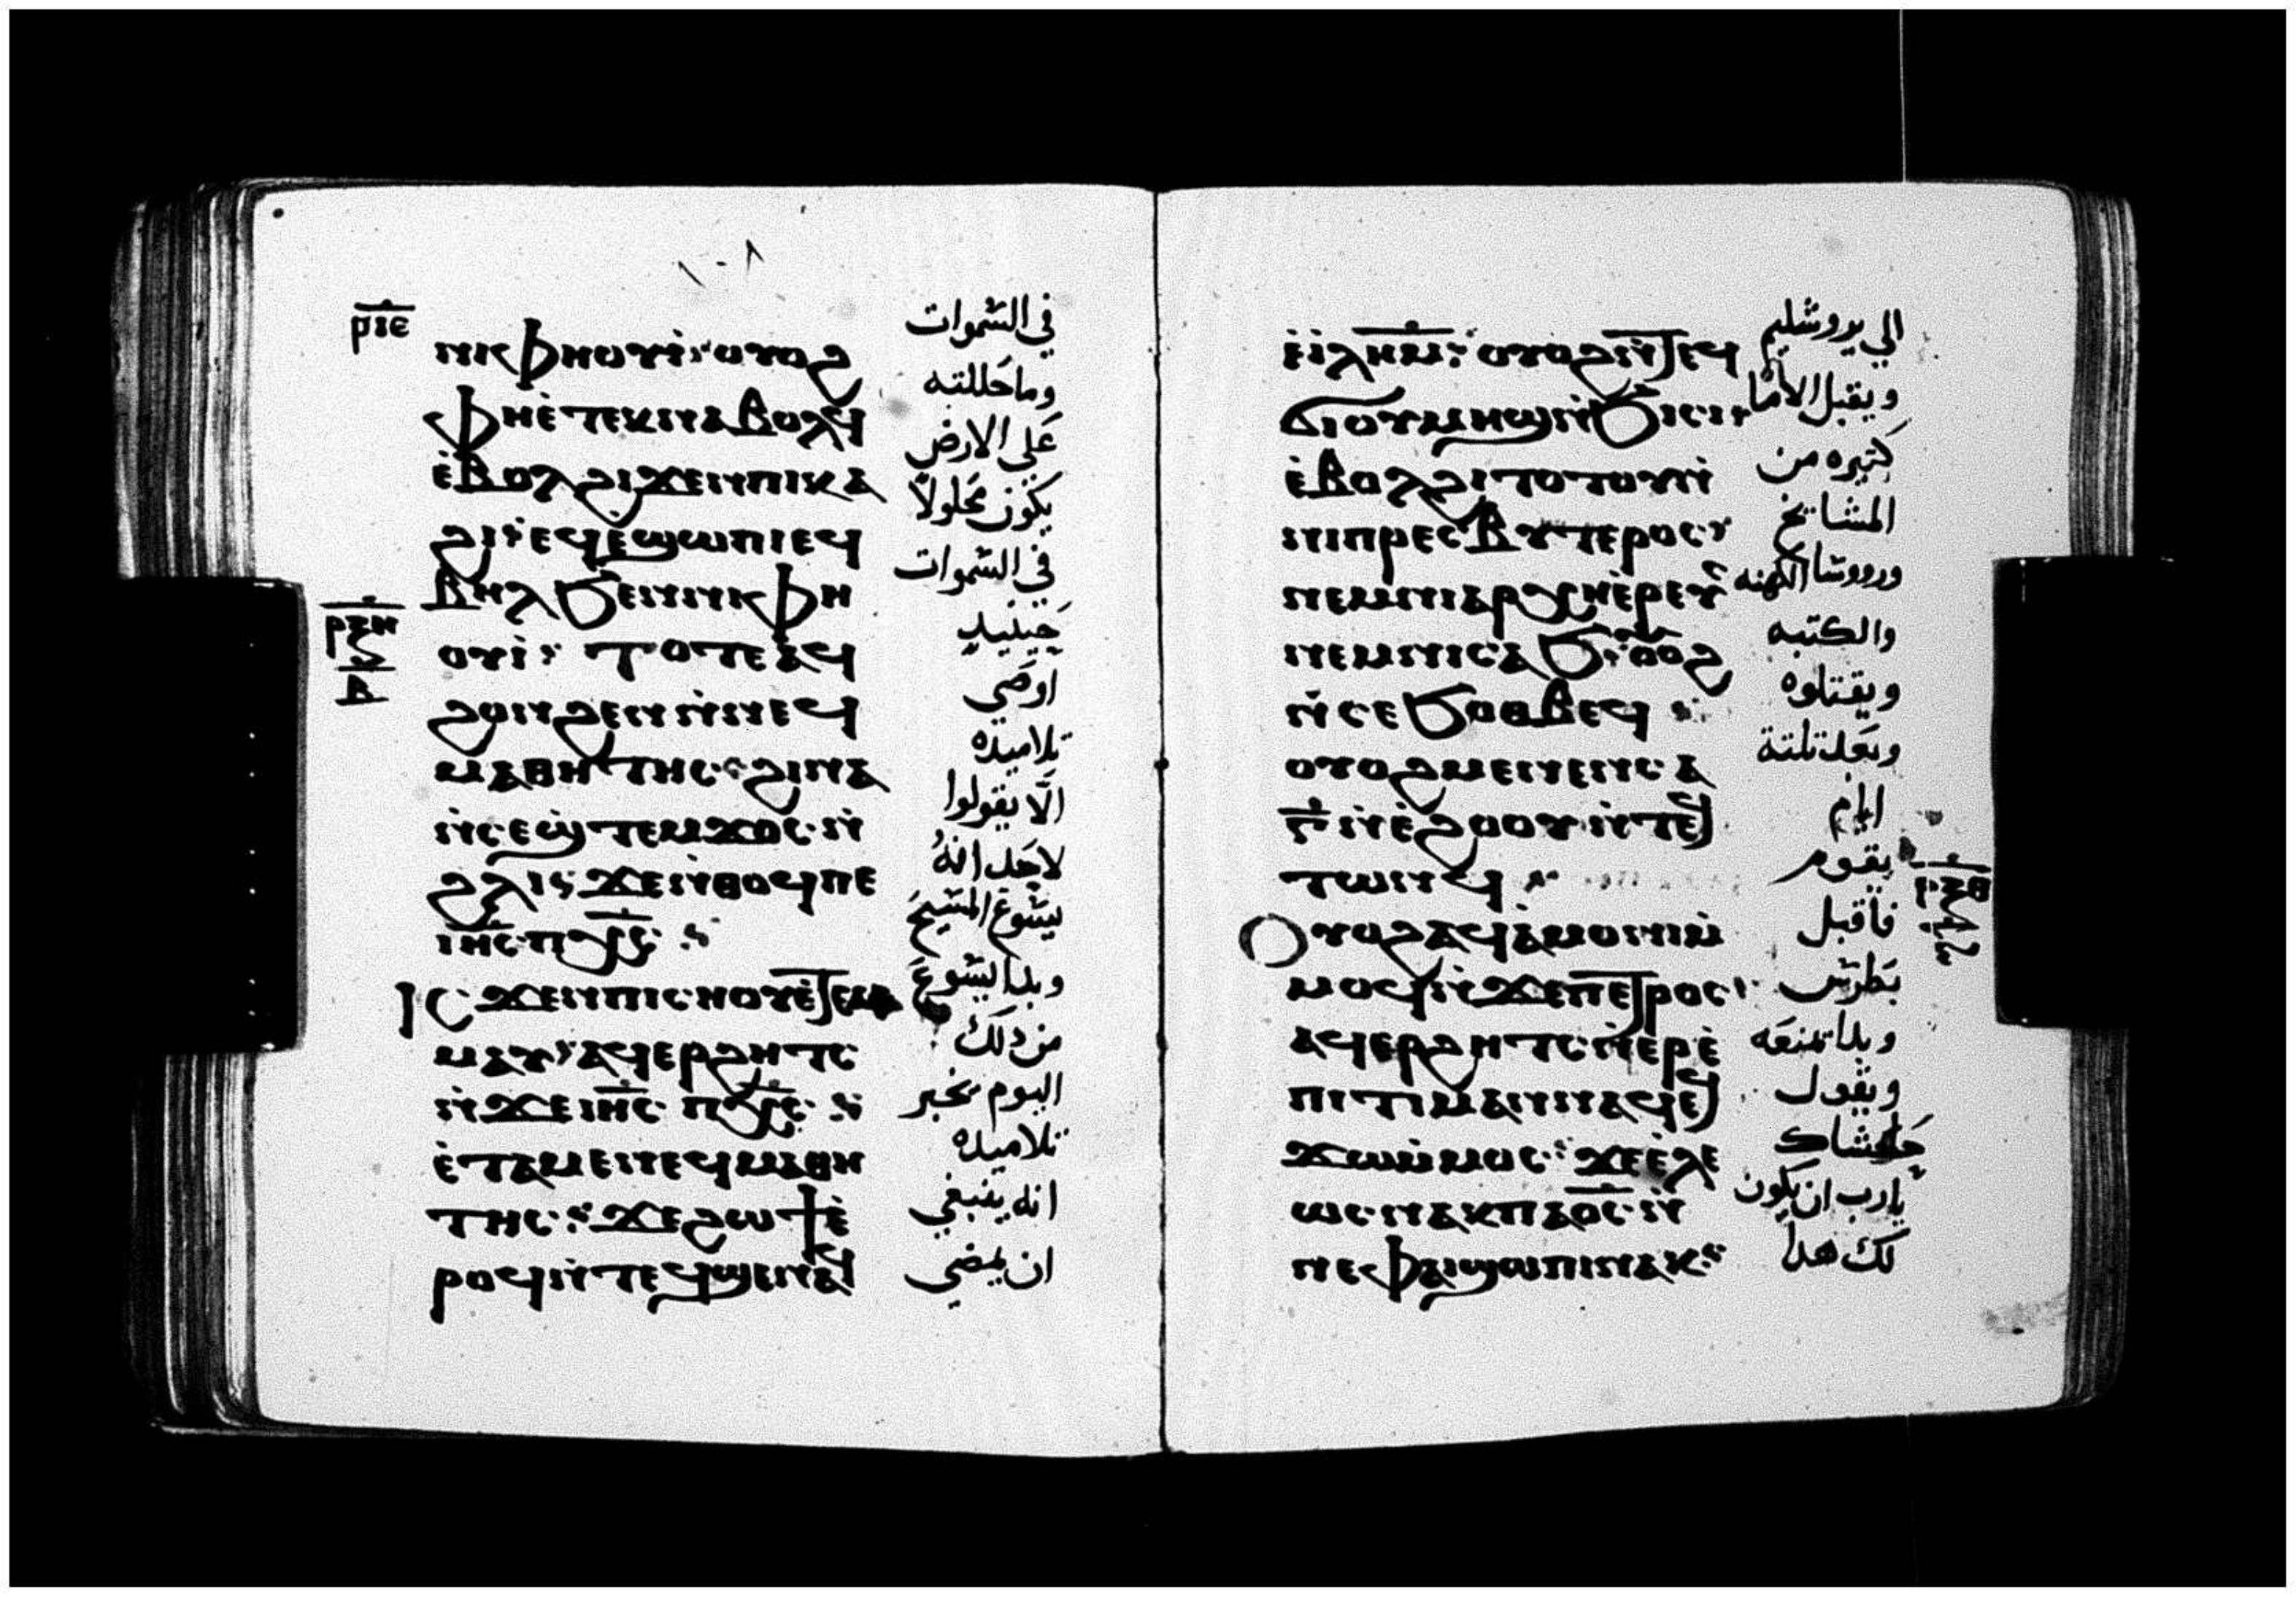 ١٠٨
ⲣⲓⲉ
ⲛⲓⲫⲏⲟⲩⲓ̀ ⲟⲩⲟϩ
ⲫⲏⲉ̀ⲧⲉⲕⲛⲁⲃⲟⲗϥ
ⲉ̀ⲃⲟⲗϩⲓϫⲉⲛⲡⲓⲕⲁ
ϩⲓ ⲉϥⲉ̀ϣⲱⲡⲓⲉϥ
ⲃⲏⲗϧⲉⲛⲛⲓⲫⲏ
ⲟⲩⲓ̀ ⲧⲟⲧⲉⲁϥ
ϩⲟⲛϩⲉⲛⲛ̀ⲛⲉϥ
ⲙⲁⲑⲏⲧⲏⲥ ϩⲓⲛⲁ
ⲛ̀ⲥⲉϣ̀ⲧⲉⲙϫⲟⲥⲛ̀
ϩⲗⲓ ϫⲉⲛ̀ⲑⲟϥⲡⲉ
ⲓⲏ̅ⲥ̅ ⲡⲭ̅ⲥ̅
ⲓⲥϫⲉⲛⲡⲓⲥⲏⲟⲩⲉ̀ⲧⲉⲙ
ⲙⲁⲩ ⲁϥⲉⲣϩⲏⲧⲥ
ⲛ̀ϫⲉⲓⲏ̅ⲥ̅ ⲡⲭ̅ⲥ̅
ⲉ̀ⲧⲁⲙⲉⲛⲉϥⲙⲁⲑⲏ
ⲧⲏⲥ ϫⲉϩⲱϯⲉ̀
ⲣⲟϥⲛ̀ⲧⲉϥϣⲉⲛⲁϥ
ⲣⲝⲏ
ⲃ
في السموات
وما حللته
على الارض
يكون محلولاً
في السموات
حينيد
اوصى
تلاميده
الّا يقولوا
لاحد انهُ
يسوع المسيح
وبدا يسوع
من دلك
اليوم يخبر
تلاميده
انه ينبغي
ان يمضي
ⲉ̀ⲓ̀ⲗ̅ⲏ̅ⲙ̅ ⲟⲩⲟϩⲛ̀ⲧⲉϥ
ϭⲓⲟⲩⲙⲏϣⲛ̀ϧⲓⲥⲓ
ⲉ̀ⲃⲟⲗϩⲓⲧⲟⲧⲟⲩⲛ̀
ⲛⲓⲡⲣⲉⲥⲃⲩⲧⲉⲣⲟⲥ
ⲛⲉⲙⲛⲓⲁⲣⲭⲏⲉ̀ⲣⲉⲩⲥ
ⲛⲉⲙⲛⲓⲥⲁϧ ⲟⲩⲟϩ
ⲛ̀ⲥⲉϧⲟⲑⲃⲉϥ
ⲟⲩⲟϩⲙⲉⲛⲉⲛⲥⲁ
ⲅ̅ ⲛ̀ⲉ̀ϩⲟⲟⲩ ⲛ̀ⲧⲉϥ
ⲧⲱⲛϥ
ⲟⲩⲟϩⲁϥⲁ̀ⲙⲟⲛⲓⲙ̀
ⲙⲟϥⲛ̀ϫⲉⲡⲉⲧⲣⲟⲥ
ⲁϥⲉⲣϩⲏⲧⲥⲛ̀ⲉⲣⲉ̀
ⲡⲓⲧⲓⲙⲁⲛⲛⲁϥⲉϥ
ϫⲱⲙ̀ⲙⲟⲥ ϫⲉⲉ̀ⲗⲉ
ⲱⲥⲛⲁⲕⲡⲁⲟ̅ⲥ̅ⲛ̀
ⲛⲉⲫⲁⲓϣⲱⲡⲓⲛⲁⲕ
الي يروشليم
ويقبل الاما
كتيره من
المشايخ
وروسا الكهنه
والكتبه
ويقتلوه
وبعد تلتة
ايام
يقوم
فاقبل
بطرس
وبدا يمنعه
ويقول
حاشاك
يارب ان يكون
لك هدا
ⲣⲝⲑ